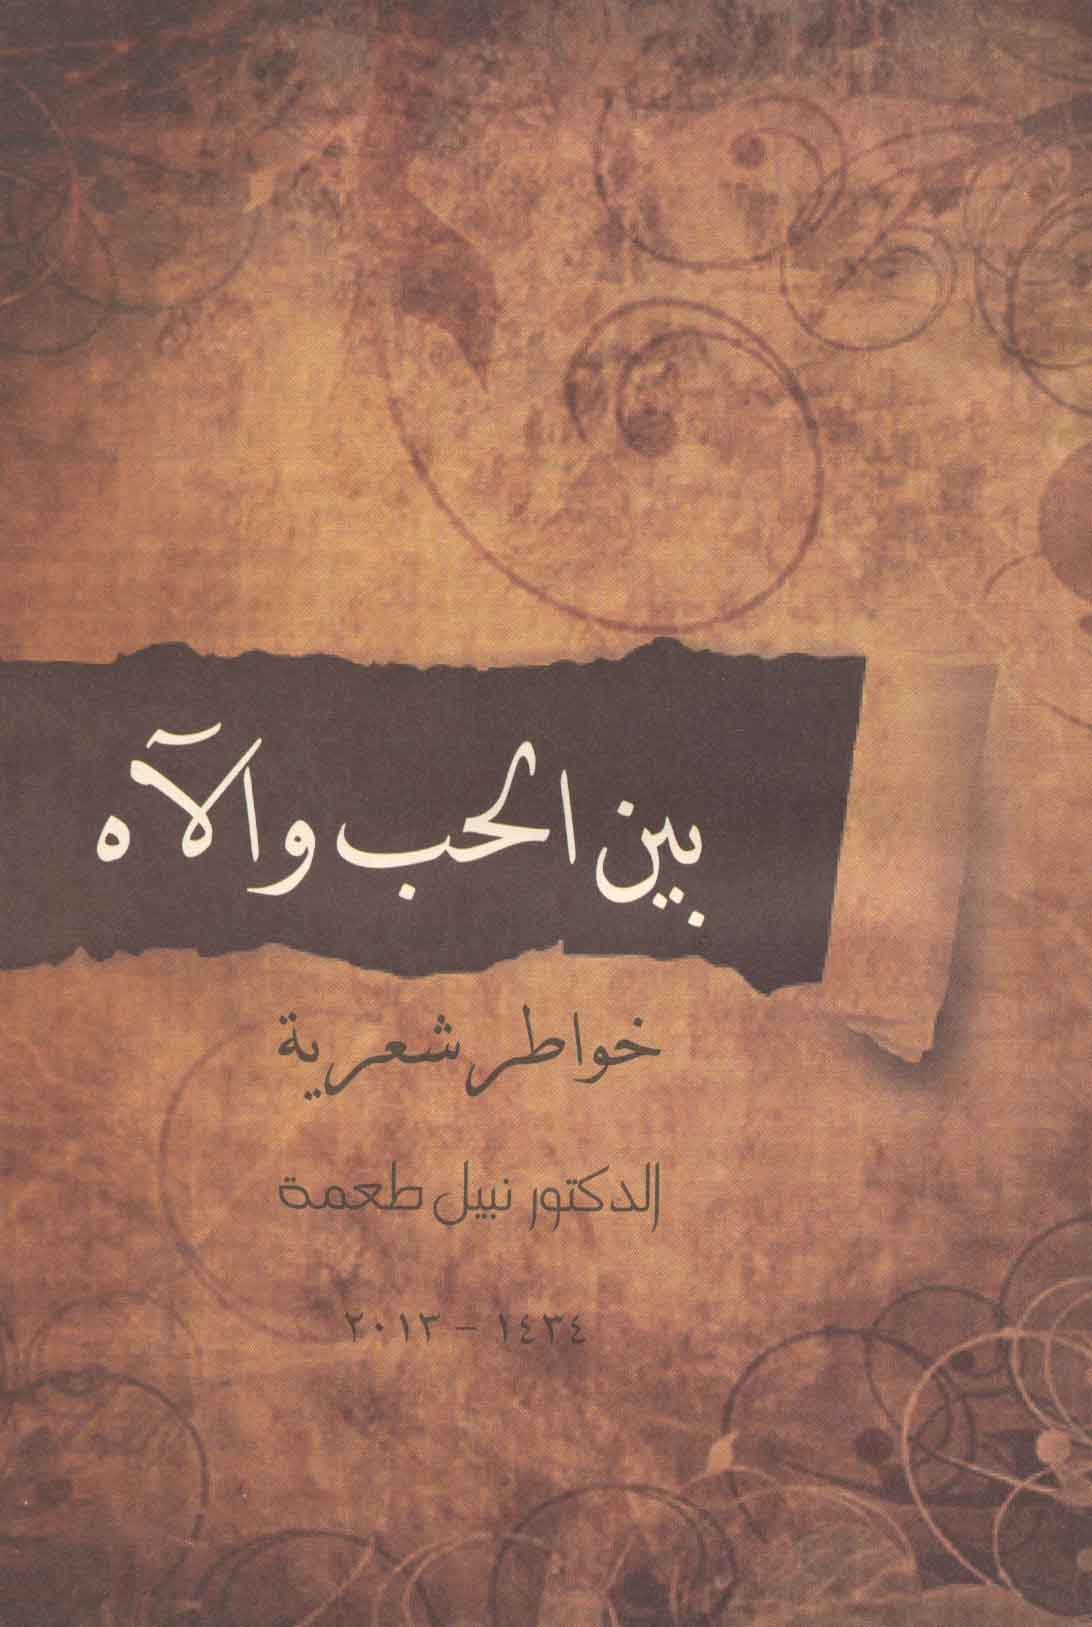 بين الحب والآه
خواطر شعرية
الدكتور نبيل طعمة
١٤٣٤ - ٢٠١٣